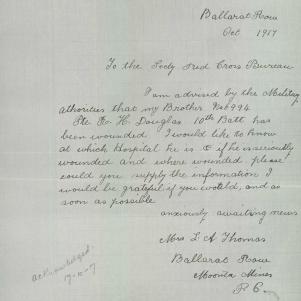 Ballarat Row
Oct 1917
To the Secty Red Cross Bureau
I am advised by the Military
athorities that my Brother No 6994
Pte H Douglas 10th Batt has
been wounded I would like to know
at which Hospital he is & if he is seriously
wounded and where wounded please
could you supply the information I
would be grateful if you would, and as
soon as possible
anxiously awaiting news
Mrs L A Thomas
Ballarat Row
Moonta Mines
acknowledged
17-10-17